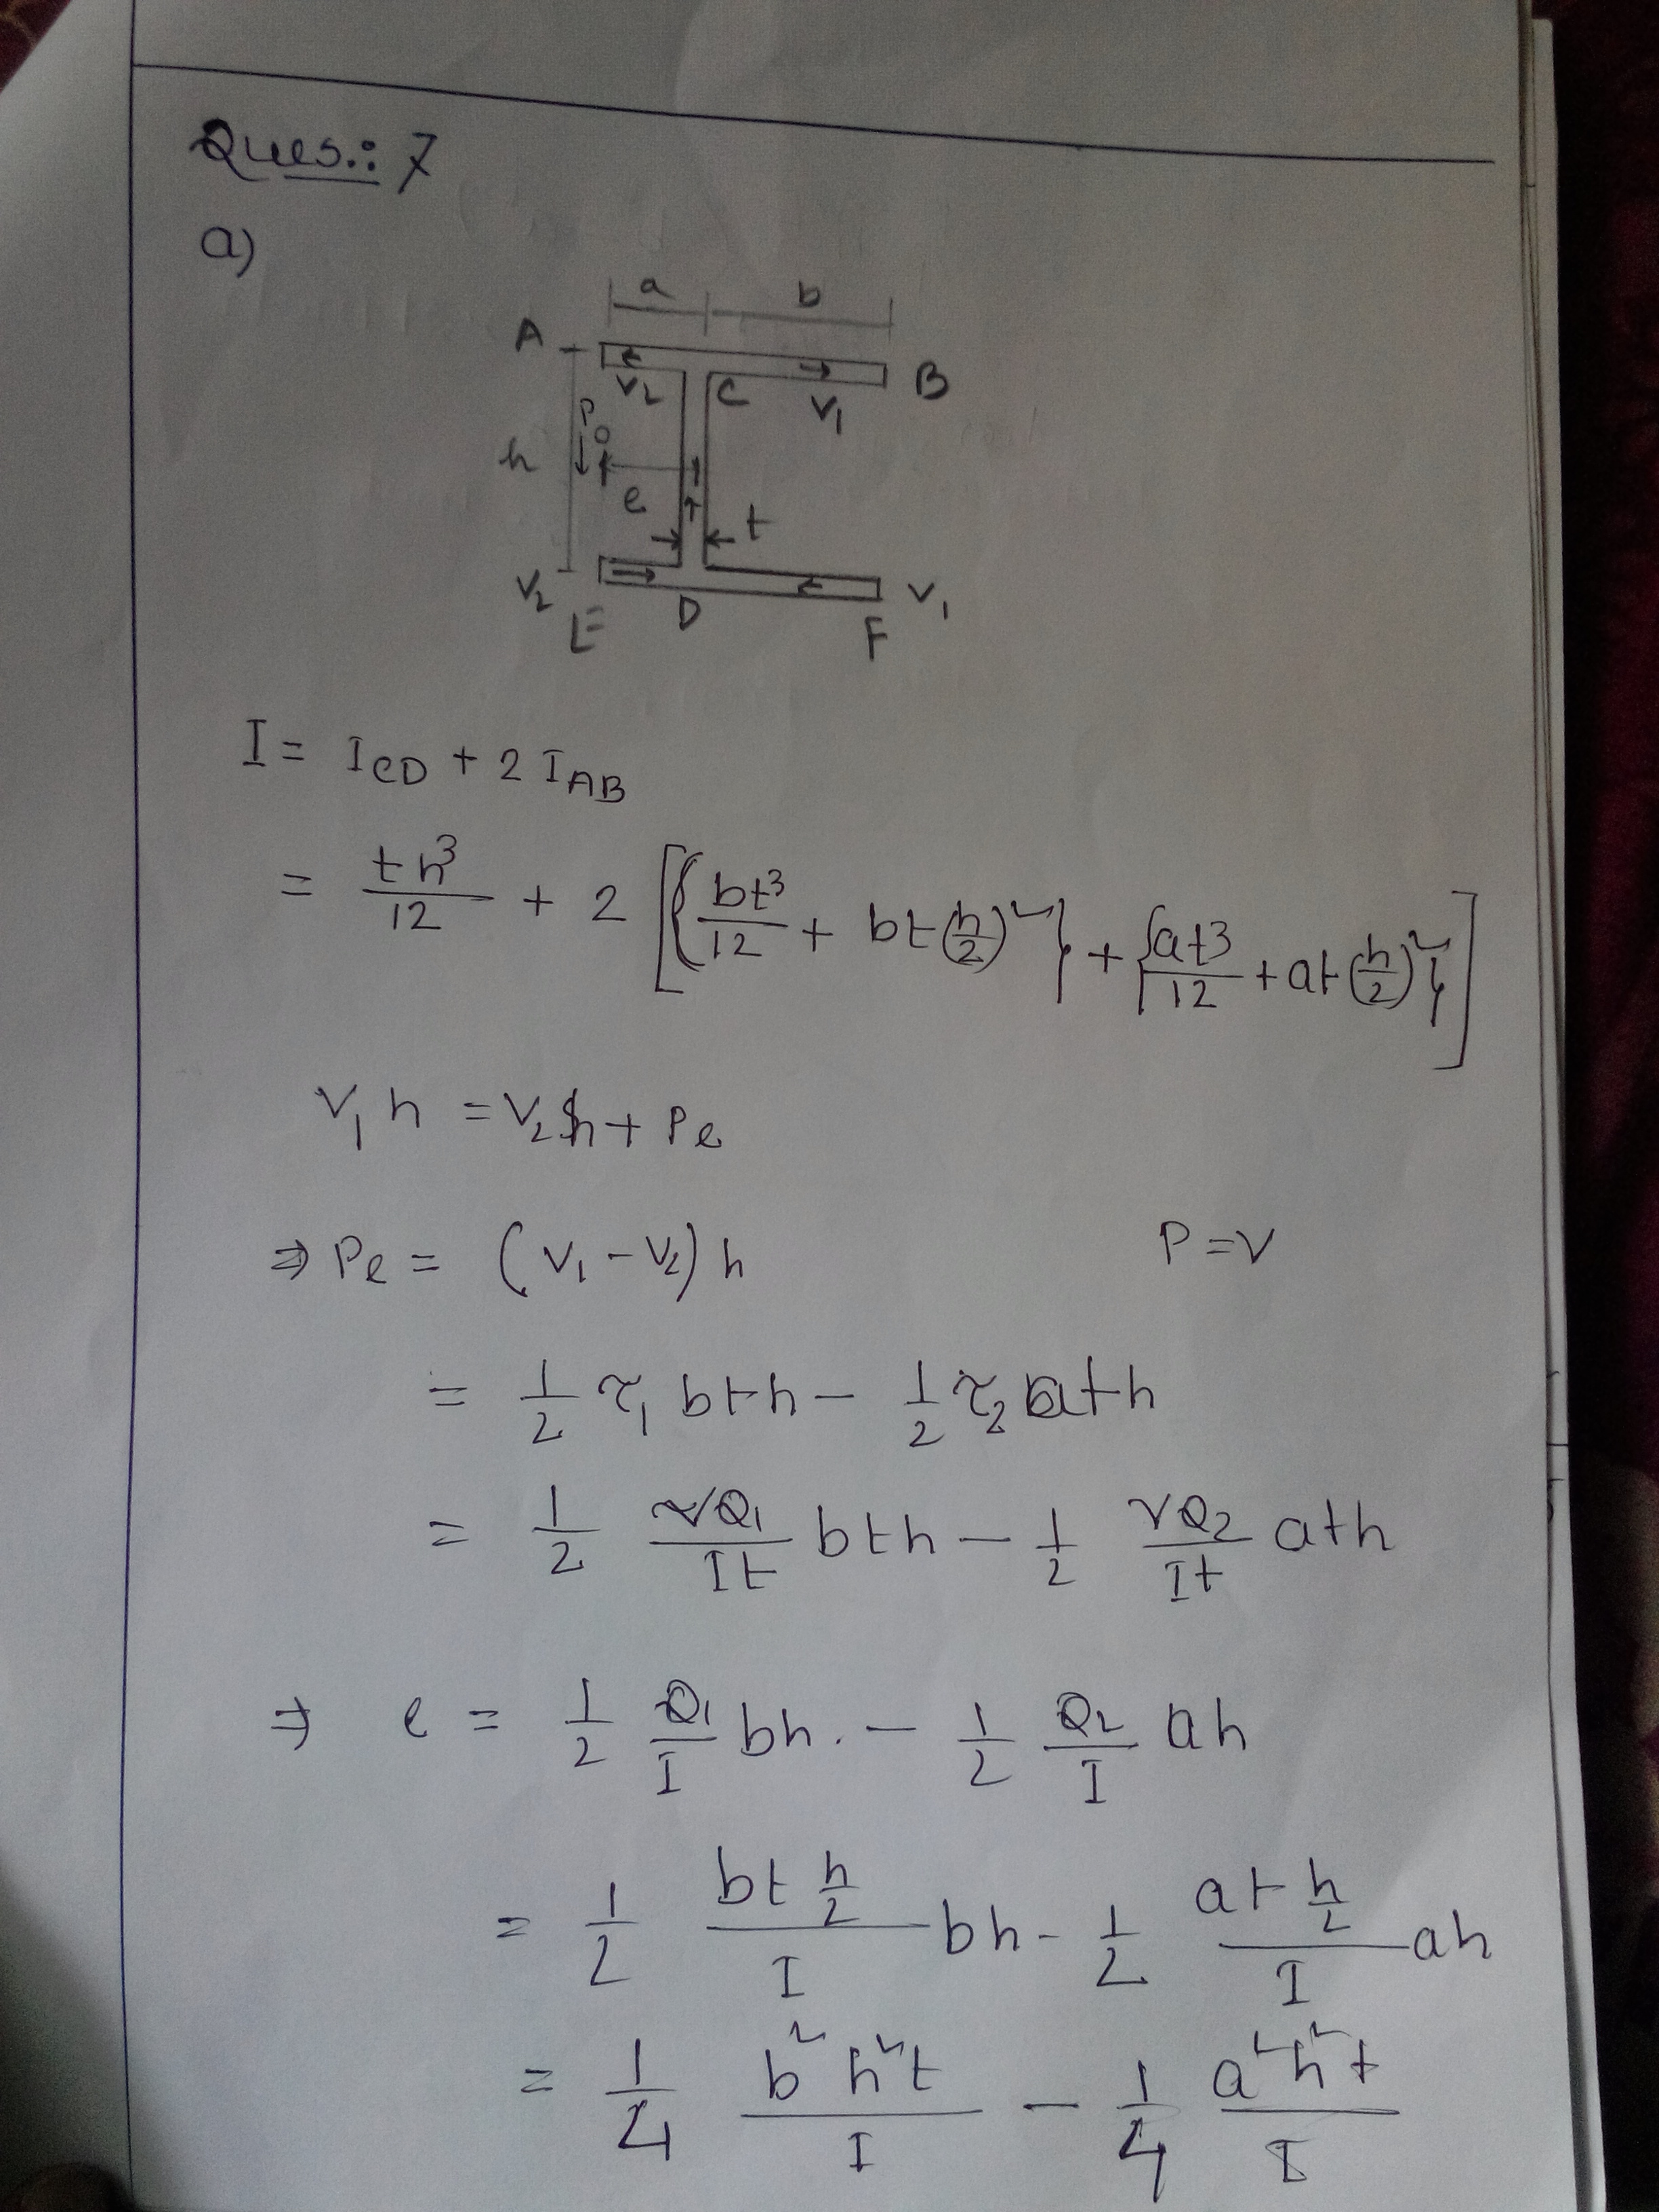 Ques.: 7
a)
a b
A B
V₂ C V₁
P
O
h
e
t
V₂ V₁
E D F
I = I_CD + 2 I_AB
= th³/12 + 2 [{bt³/12 + bt(h/2)²} + {at³/12 + at(h/2)²}]
V₁ h = V₂ h + Pe
⇒ Pe = (V₁ - V₂) h P = V
= 1/2 τ₁ bth - 1/2 τ₂ ath
= 1/2 VQ₁/It bth - 1/2 VQ₂/It ath
⇒ e = 1/2 Q₁/I bh. - 1/2 Q₂/I ah
= 1/2 (bt h/2)/I bh - 1/2 (at h/2)/I ah
= 1/4 b²h²t/I - 1/4 a²h²t/I